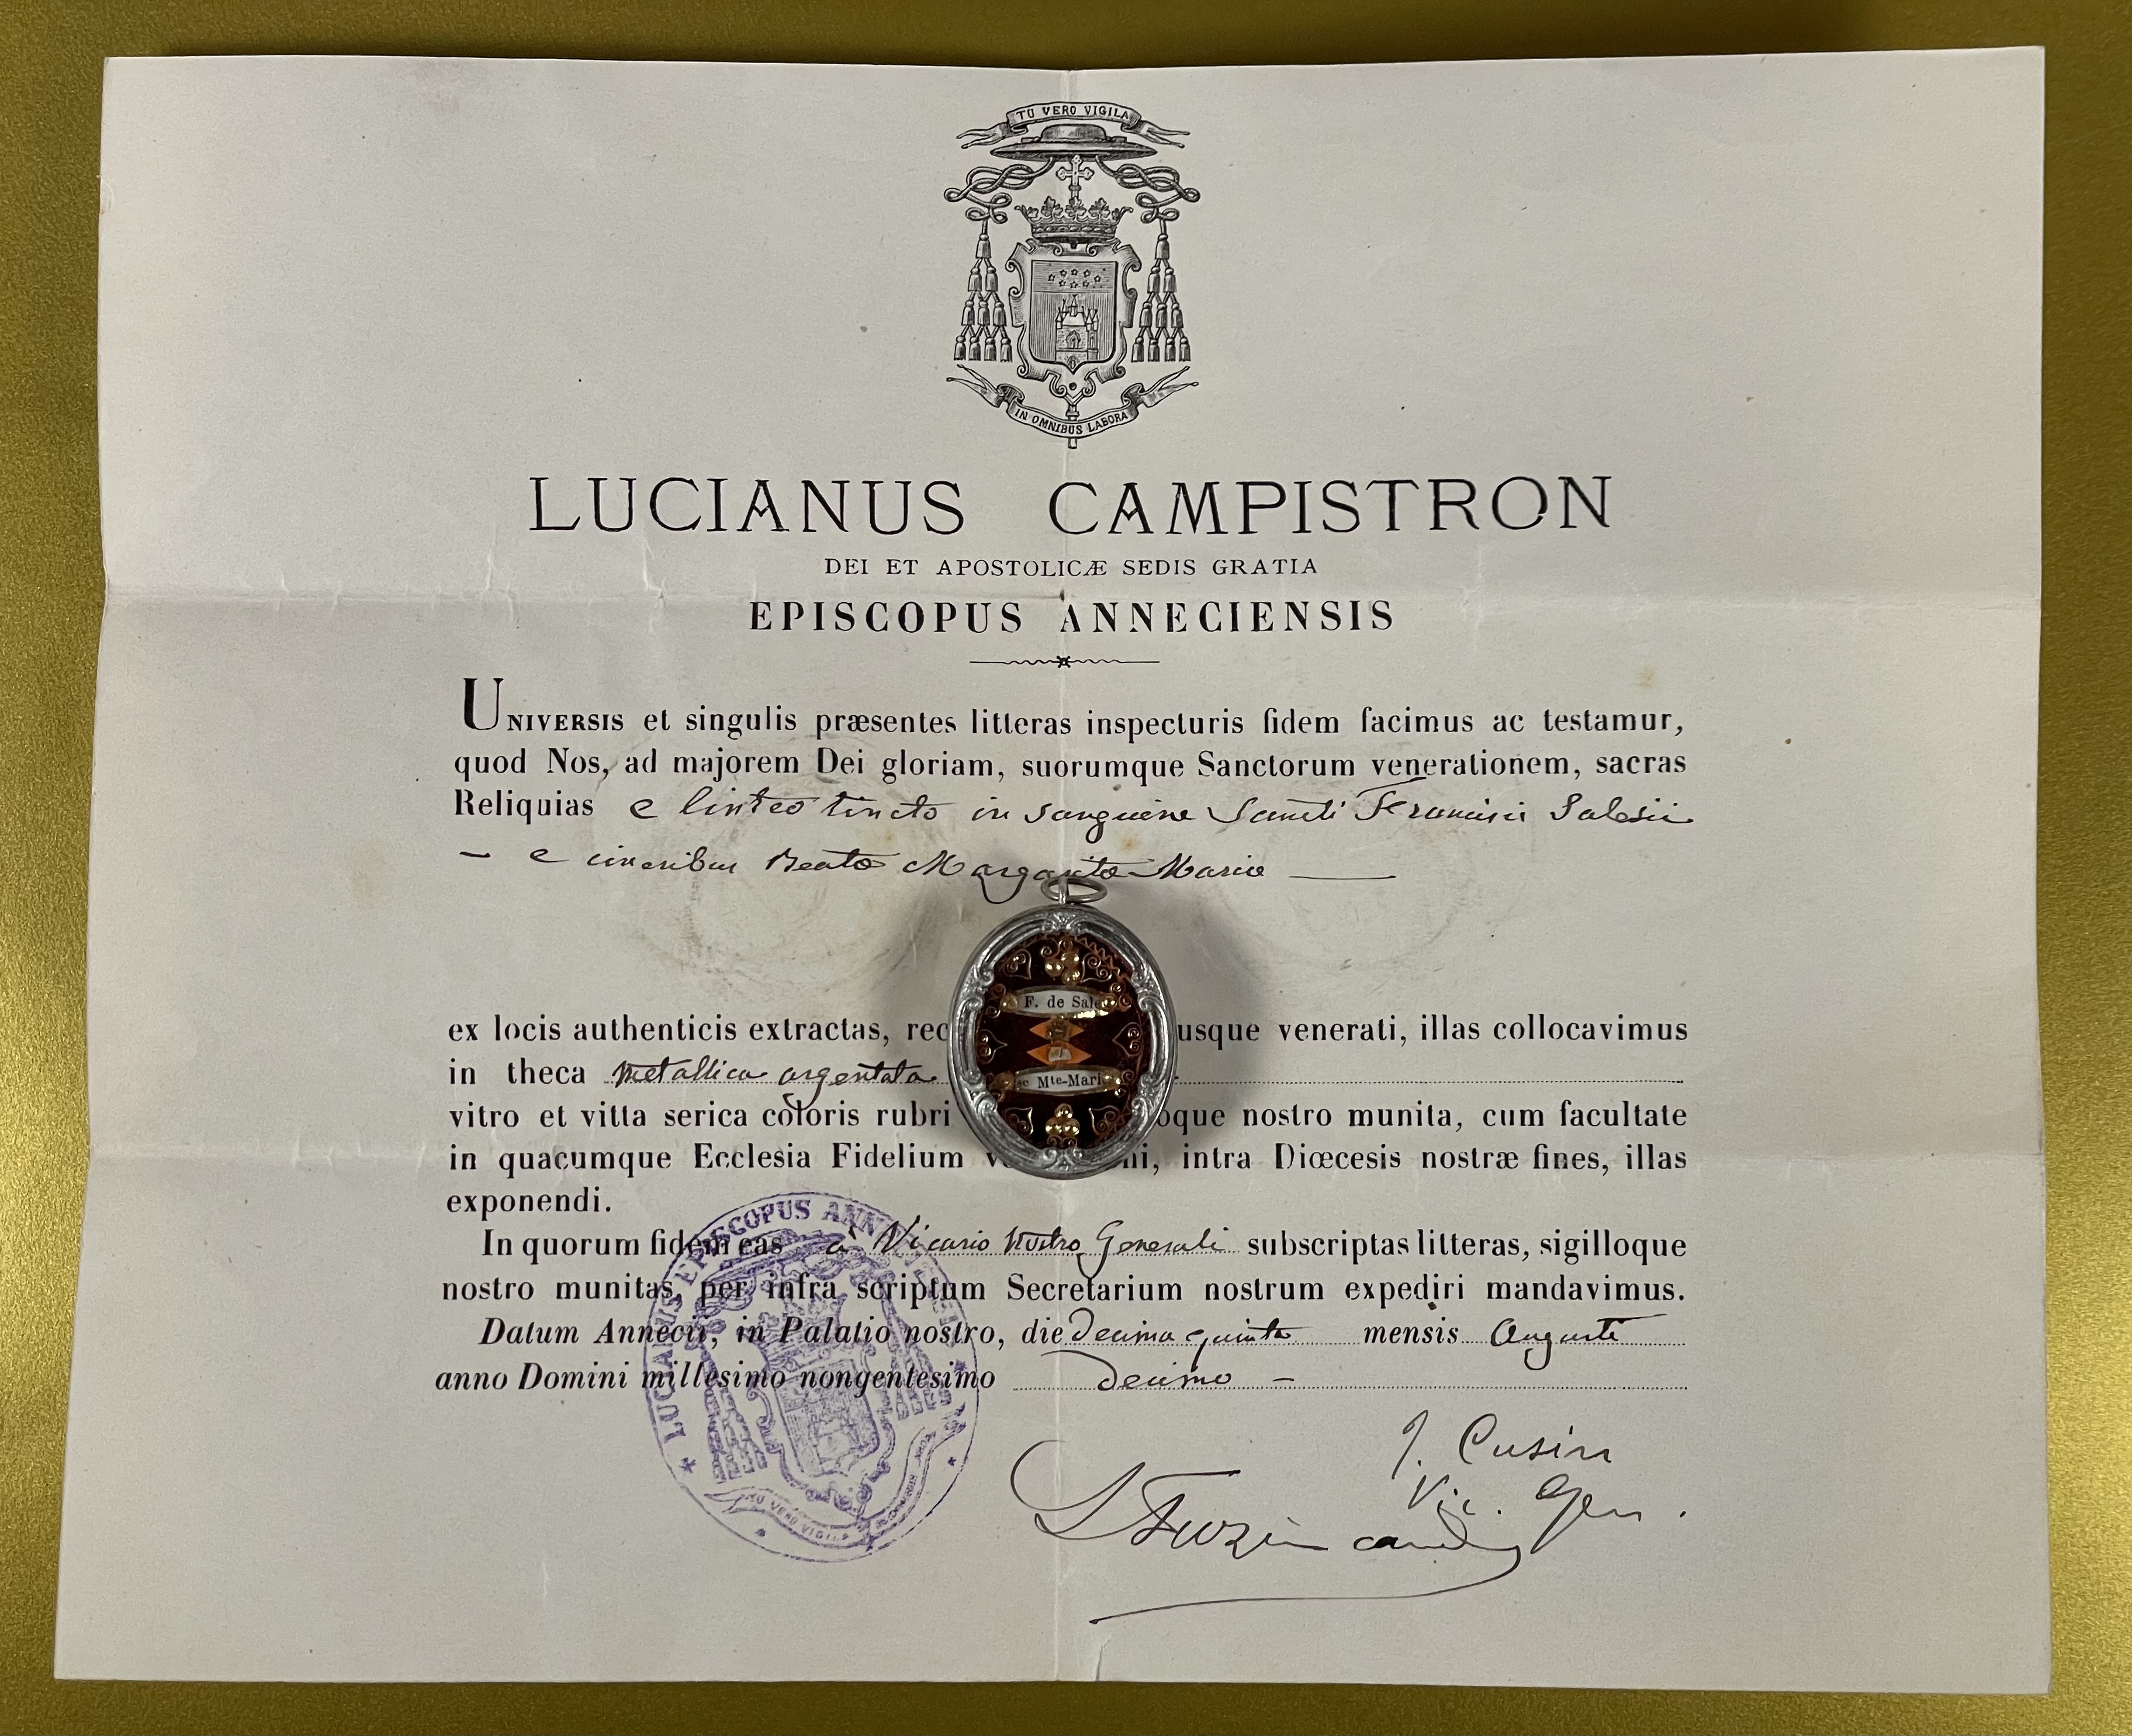 TU VERO VIGILA
IN OMNIBUS LABORA
LUCIANUS CAMPISTRON
DEI ET APOSTOLICÆ SEDIS GRATIA
EPISCOPUS ANNECIENSIS
UNIVERSIS et singulis præsentes litteras inspecturis fidem facimus ac testamur,
quod Nos, ad majorem Dei gloriam, suorumque Sanctorum venerationem, sacras
Reliquias e linteo tincto in sanguine Sancti Francisci Salesii
– e cineribus Beatæ Margaritæ Mariæ —
ex locis authenticis extractas, rec usque venerati, illas collocavimus
F. de Sale
in theca metallica argentata
se Mte-Mari
vitro et vitta serica coloris rubri oque nostro munita, cum facultate
in quacumque Ecclesia Fidelium ni, intra Diœcesis nostræ fines, illas
exponendi.
In quorum fidem eas a Vicario Nostro Generali subscriptas litteras, sigilloque
nostro munitas, per infra scriptum Secretarium nostrum expediri mandavimus.
Datum Annecii, in Palatio nostro, die decima quinta mensis Augusti
anno Domini millesimo nongentesimo decimo –
LUCIANUS EPISCOPUS ANN
TU VERO VIGILA
J. Cusin
Vic. Gen.